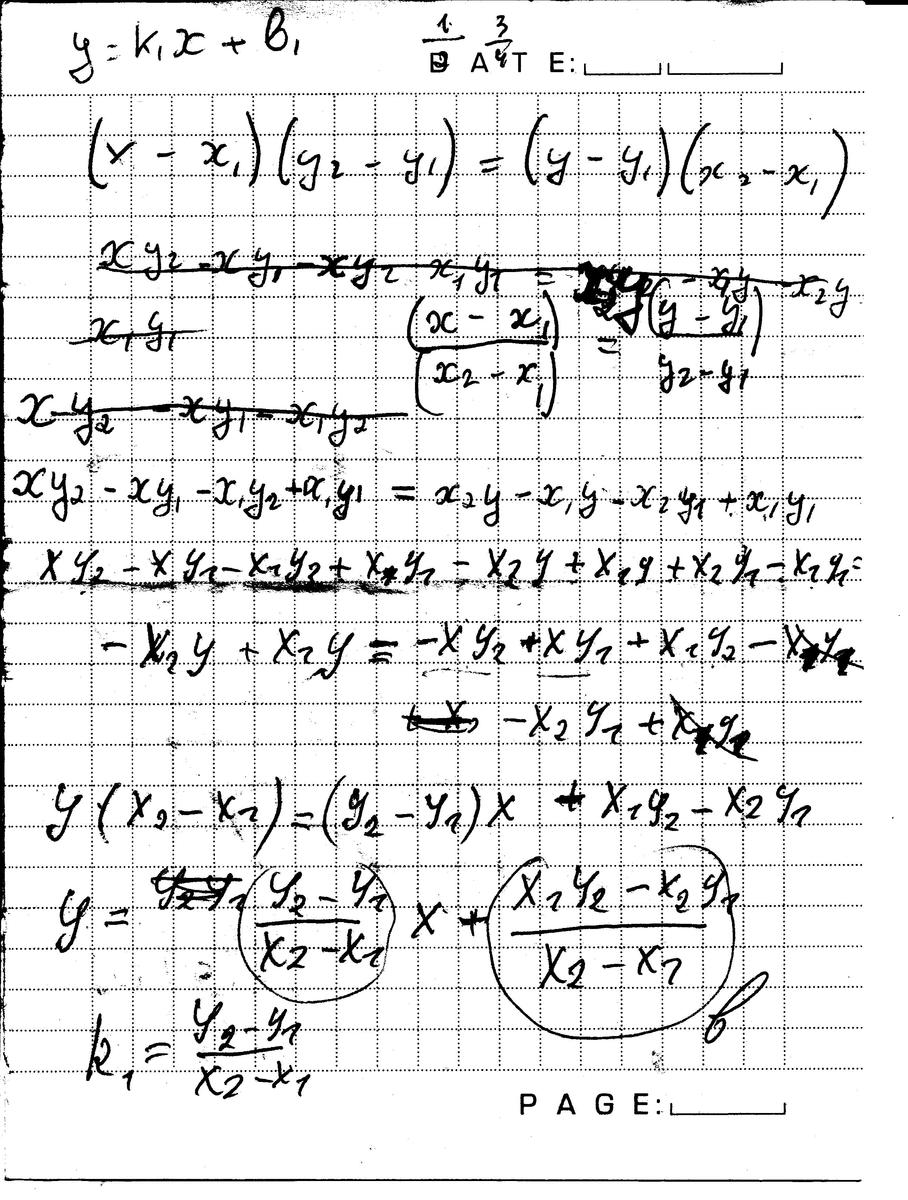 y = k₁x + b₁
1/2 3/4
DATE:
(x - x₁)(y₂ - y₁) = (y - y₁)(x₂ - x₁)
xy₂ - xy₁ - xy₂ x₁y₁ = - x₁y - x₂y
x₁y₁
(x - x₁)/(x₂ - x₁) = (y - y₁)/(y₂ - y₁)
xy₂ - xy₁ - x₁y₂
xy₂ - xy₁ - x₁y₂ + x₁y₁ = x₂y - x₁y - x₂y₁ + x₁y₁
xy₂ - xy₁ - x₁y₂ + x₁y₁ - x₂y + x₁y + x₂y₁ - x₁y₁ =
- x₂y + x₁y = - xy₂ + xy₁ + x₁y₂ - x₁y₁
+ x₁ - x₂y₁ + x₁y₁
y (x₂ - x₁) = (y₂ - y₁)x + x₁y₂ - x₂y₁
y = y₂y₁ (y₂ - y₁)/(x₂ - x₁) x + (x₁y₂ - x₂y₁)/(x₂ - x₁)
b
k₁ = (y₂ - y₁)/(x₂ - x₁)
PAGE: